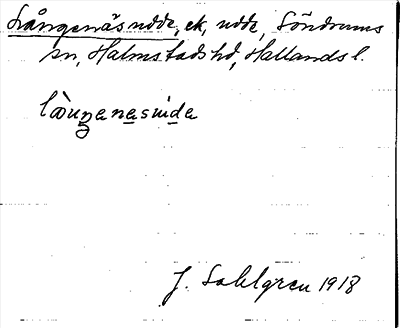 Långenäsudde, ek, udde, Söndrums
sn, Halmstads hd, Hallands l.
làunganasuida
J. Sahlgren 1918